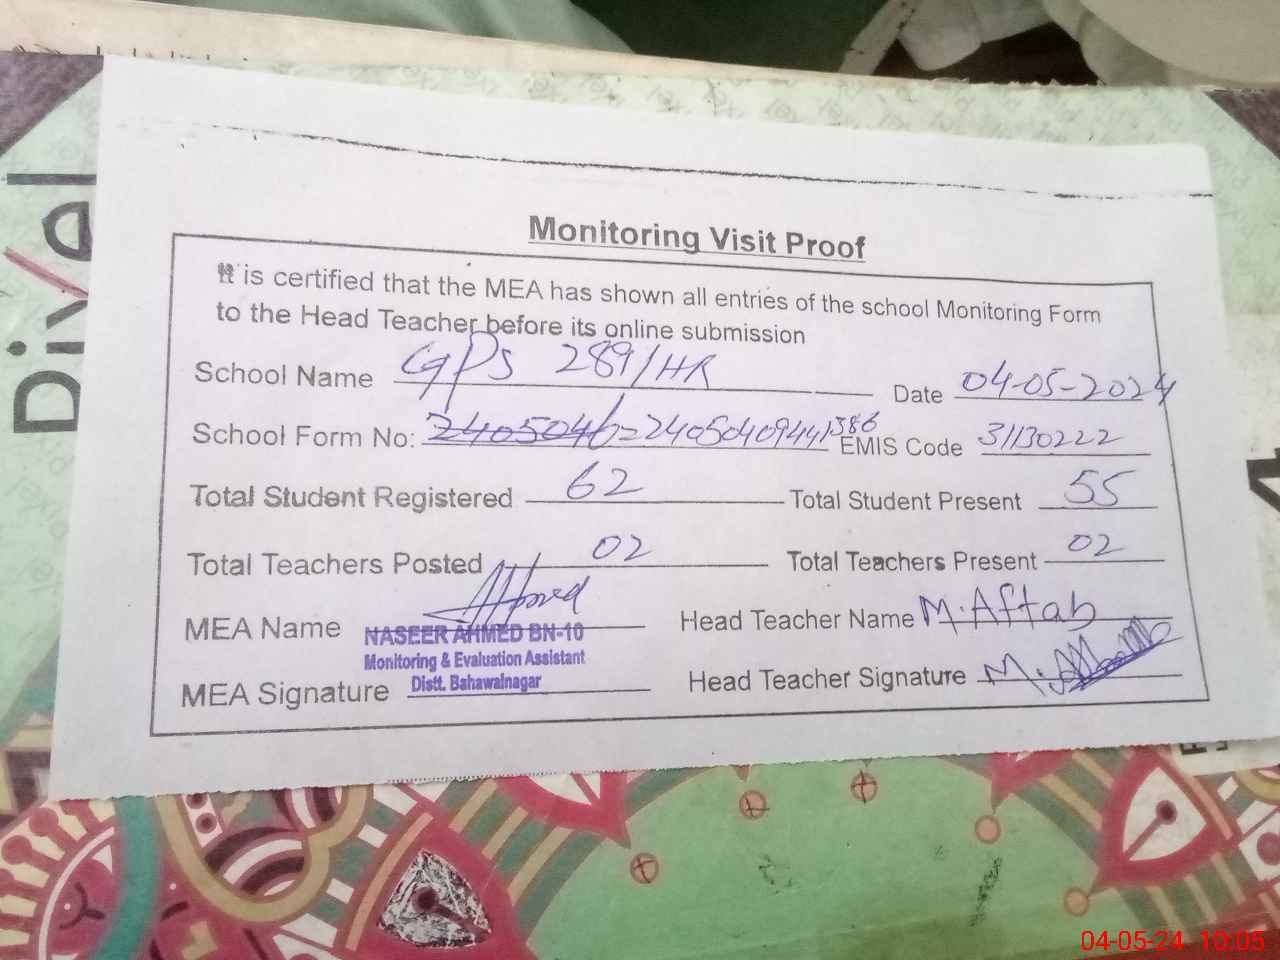 Divel
Monitoring Visit Proof
It is certified that the MEA has shown all entries of the school Monitoring Form
to the Head Teacher before its online submission
School Name GPS 289/HR Date 04-05-2024
School Form No: 2405046-24050409441386 EMIS Code 31130222
Total Student Registered 62 Total Student Present 55
Total Teachers Posted 02 Total Teachers Present 02
MEA Name Ahmed Head Teacher Name M.Aftab
NASEER AHMED BN-10
Monitoring & Evaluation Assistant
Distt. Bahawalnagar
MEA Signature Head Teacher Signature M.
04-05-24 10:05